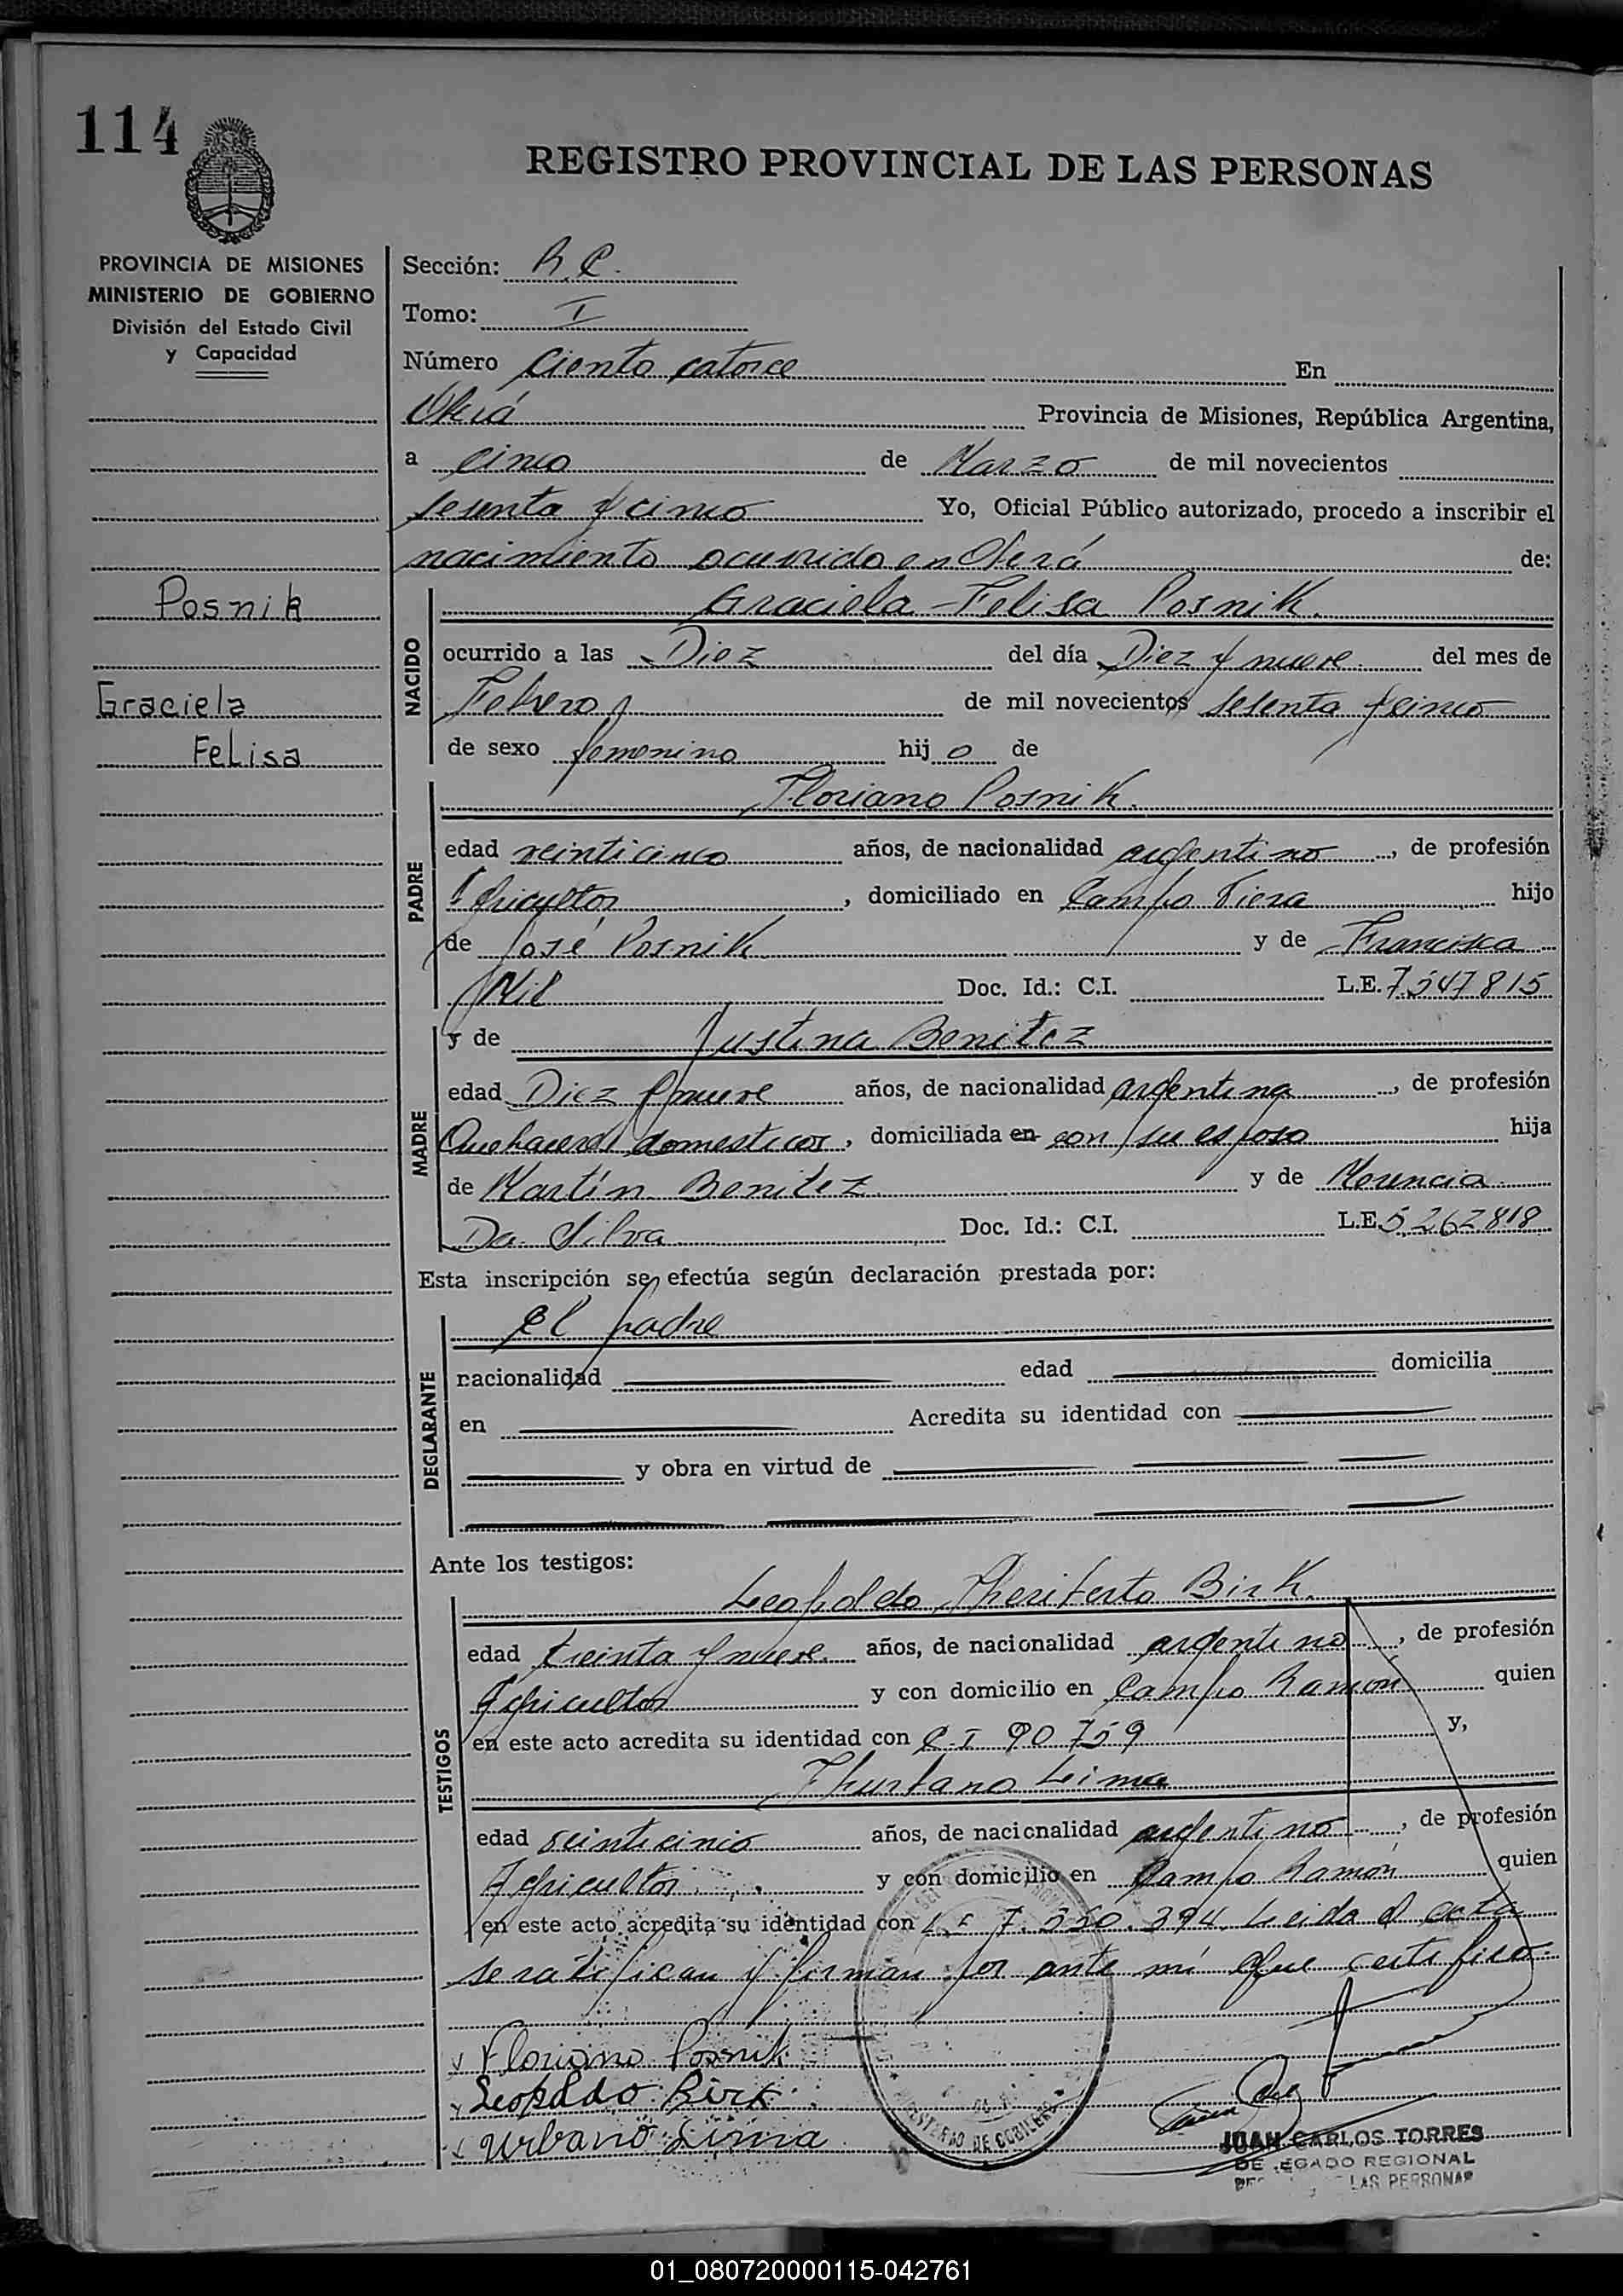 114
REGISTRO PROVINCIAL DE LAS PERSONAS
PROVINCIA DE MISIONES
MINISTERIO DE GOBIERNO
División del Estado Civil
y Capacidad
Posnik
Graciela
Felisa
Sección: R.C.
Tomo: I
Número ciento catorce En
Oberá Provincia de Misiones, República Argentina,
a cinco de Marzo de mil novecientos
sesenta y cinco Yo, Oficial Público autorizado, procedo a inscribir el
nacimiento ocurrido en Oberá de:
NACIDO
Graciela Felisa Posnik.
ocurrido a las Diez del día Diez y nueve del mes de
Febrero de mil novecientos sesenta y cinco
de sexo femenino hij o de
PADRE
Floriano Posnik.
edad veinticinco años, de nacionalidad argentino, de profesión
Agricultor, domiciliado en Campo Viera hijo
de José Posnik y de Francisca
Doc. Id.: C.I. L.E. 7547815
MADRE
y de Justina Benitez
edad Diez y nueve años, de nacionalidad argentina, de profesión
Quehaceres domesticos, domiciliada en con su esposo hija
de Martín Benitez y de
Da Silva Doc. Id.: C.I. L.E. 5.262818
Esta inscripción se efectúa según declaración prestada por:
DECLARANTE
el padre
nacionalidad edad domicilia
en Acredita su identidad con
y obra en virtud de
Ante los testigos:
TESTIGOS
Leopoldo Heriberto Birk.
edad treinta y nueve años, de nacionalidad argentino, de profesión
Agricultor y con domicilio en Campo Ramón quien
en este acto acredita su identidad con C.I 90.759 y,
Lima
edad veinticinco años, de nacionalidad argentino, de profesión
Agricultor y con domicilio en Campo Ramón quien
en este acto acredita su identidad con L.E 7.550.394. Leida el acta
se ratifican y firman por ante mí que certifico.
Floriano Posnik
Leopoldo Birk
Urbano Lima
MINISTERIO DE GOBIERNO
JUAN CARLOS TORRES
DELEGADO REGIONAL
LAS PERSONAS
01_080720000115-042761